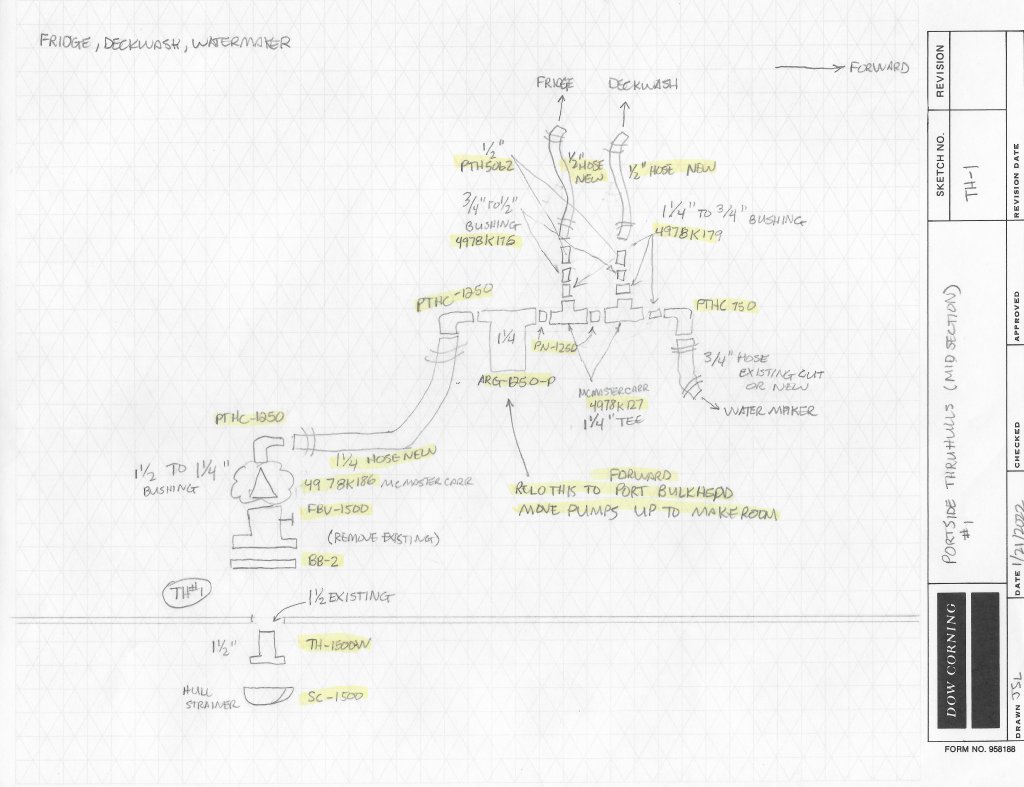 FRIDGE, DECKWASH, WATERMAKER
FORWARD
FRIDGE
DECKWASH
1/2"
PTH5062
1/2" HOSE
NEW
1/2" HOSE NEW
3/4" TO 1/2"
BUSHING
4978K176
1 1/4" TO 3/4" BUSHING
4978K179
PTHC-1250
PTHC 750
1 1/4
PN-1250
ARG-1250-P
MCMASTERCARR
4978K127
1 1/4" TEE
3/4" HOSE
EXISTING CUT
OR NEW
WATER MAKER
PTHC-1250
1 1/4 HOSE NEW
1 1/2 TO 1 1/4"
BUSHING
4978K186 MCMASTERCARR
FORWARD
RELO THIS TO PORT BULKHEAD
MOVE PUMPS UP TO MAKE ROOM
FBV-1500
(REMOVE EXISTING)
BB-2
TH#1
1 1/2 EXISTING
1 1/2"
TH-1500
HULL
STRAINER
SC-1500
REVISION
SKETCH NO.
TH-1
REVISION DATE
PORTSIDE THRUHULLS (MID SECTION)
#1
APPROVED
CHECKED
DATE 1/21/2022
DRAWN JSL
DOW CORNING
FORM NO. 958188